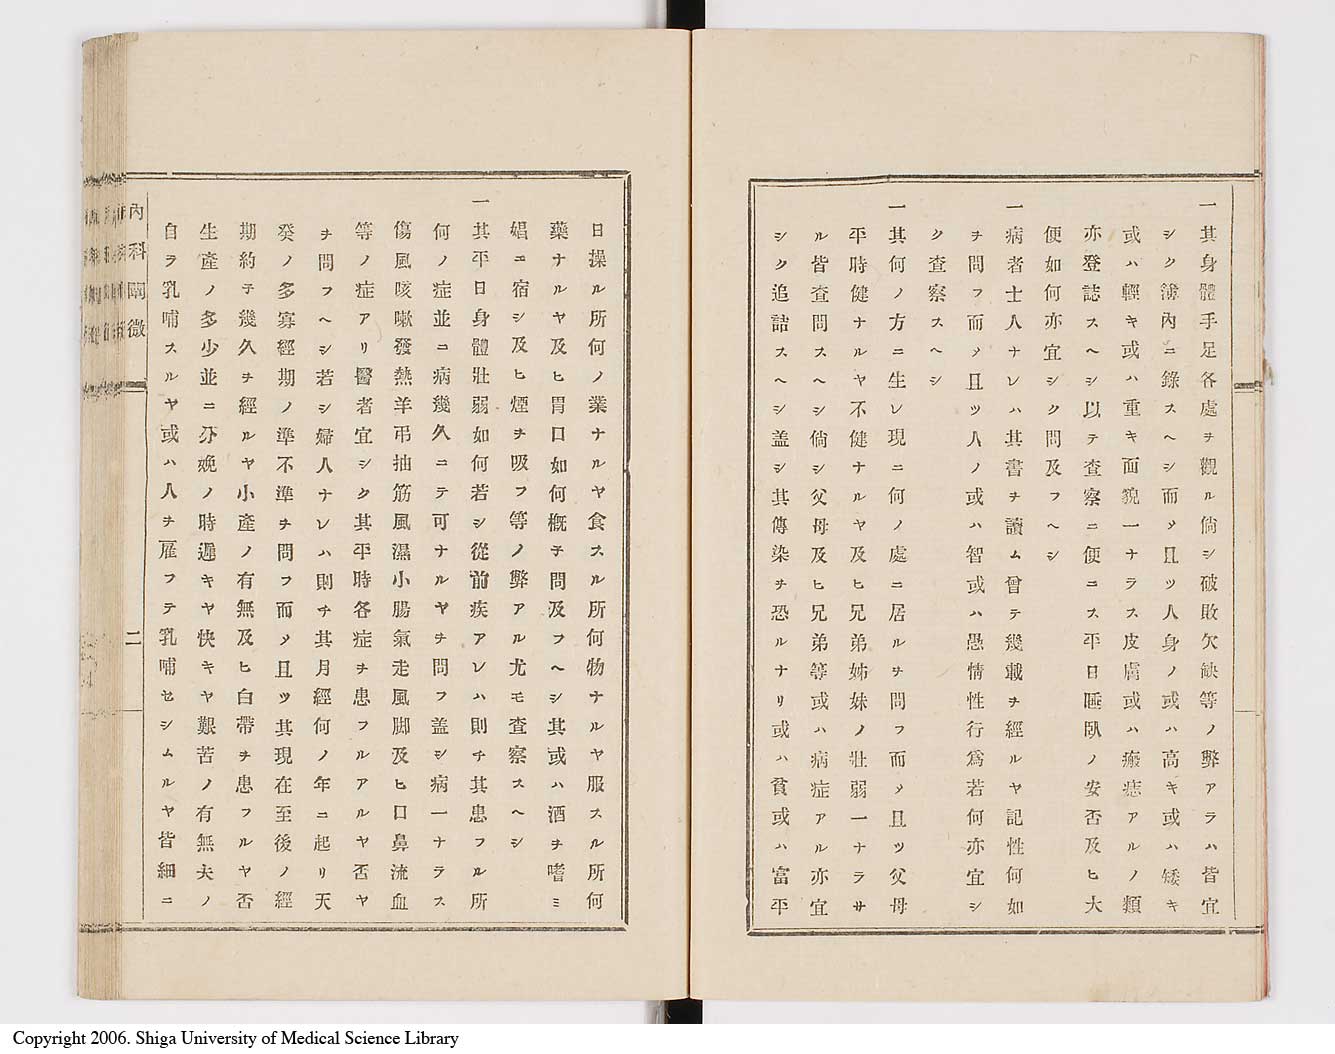 一其身體手足各處ヲ觀ル倘シ破敗欠缺等ノ弊アラハ皆宜
シク簿內ニ錄スヘシ而〆且ツ人身ノ或ハ高キ或ハ矮キ
或ハ輕キ或ハ重キ面貌一ナラス皮膚或ハ瘢痣アルノ類
亦登誌スヘシ以テ查察ニ便ニス平日睡臥ノ安否及ヒ大
便如何亦宜シク問及フヘシ
一病者士人ナレハ其書ヲ讀ム曾テ幾載ヲ經ルヤ記性何如
ヲ問フ而〆且ツ人ノ或ハ智或ハ愚情性行爲若何亦宜シ
ク查察スヘシ
一其何ノ方ニ生レ現ニ何ノ處ニ居ルヲ問フ而〆且ツ父母
平時健ナルヤ不健ナルヤ及ヒ兄弟姊妹ノ壯弱一ナラサ
ル皆查問スヘシ倘シ父母及ヒ兄弟等或ハ病症アル亦宜
シク追詰スヘシ盖シ其傳染ヲ恐ルナリ或ハ貧或ハ富平
日操ル所何ノ業ナルヤ食スル所何物ナルヤ服スル所何
藥ナルヤ及ヒ胃口如何概子問及フヘシ其或ハ酒ヲ嗜ミ
娼ニ宿シ及ヒ煙ヲ吸フ等ノ弊アル尤モ查察スヘシ
一其平日身體壯弱如何若シ從前疾アレハ則チ其患フル所
何ノ症並ニ病幾久ニテ可ナルヤヲ問フ盖シ病一ナラス
傷風咳嗽發熱羊弔抽筋風濕小腸氣走風脚及ヒ口鼻流血
等ノ症アリ醫者宜シク其平時各症ヲ患フルアルヤ否ヤ
ヲ問フヘシ若シ婦人ナレハ則チ其月經何ノ年ニ起リ天
癸ノ多寡經期ノ準不準ヲ問フ而〆且ツ其現在至後ノ經
期約子幾久ヲ經ルヤ小產ノ有無及ヒ白帶ヲ患フルヤ否
生產ノ多少並ニ分娩ノ時遲キヤ快キヤ艱苦ノ有無夫ノ
自ラ乳哺スルヤ或ハ人ヲ雇フテ乳哺セシムルヤ皆細ニ
內科闡微
二
Copyright 2006. Shiga University of Medical Science Library